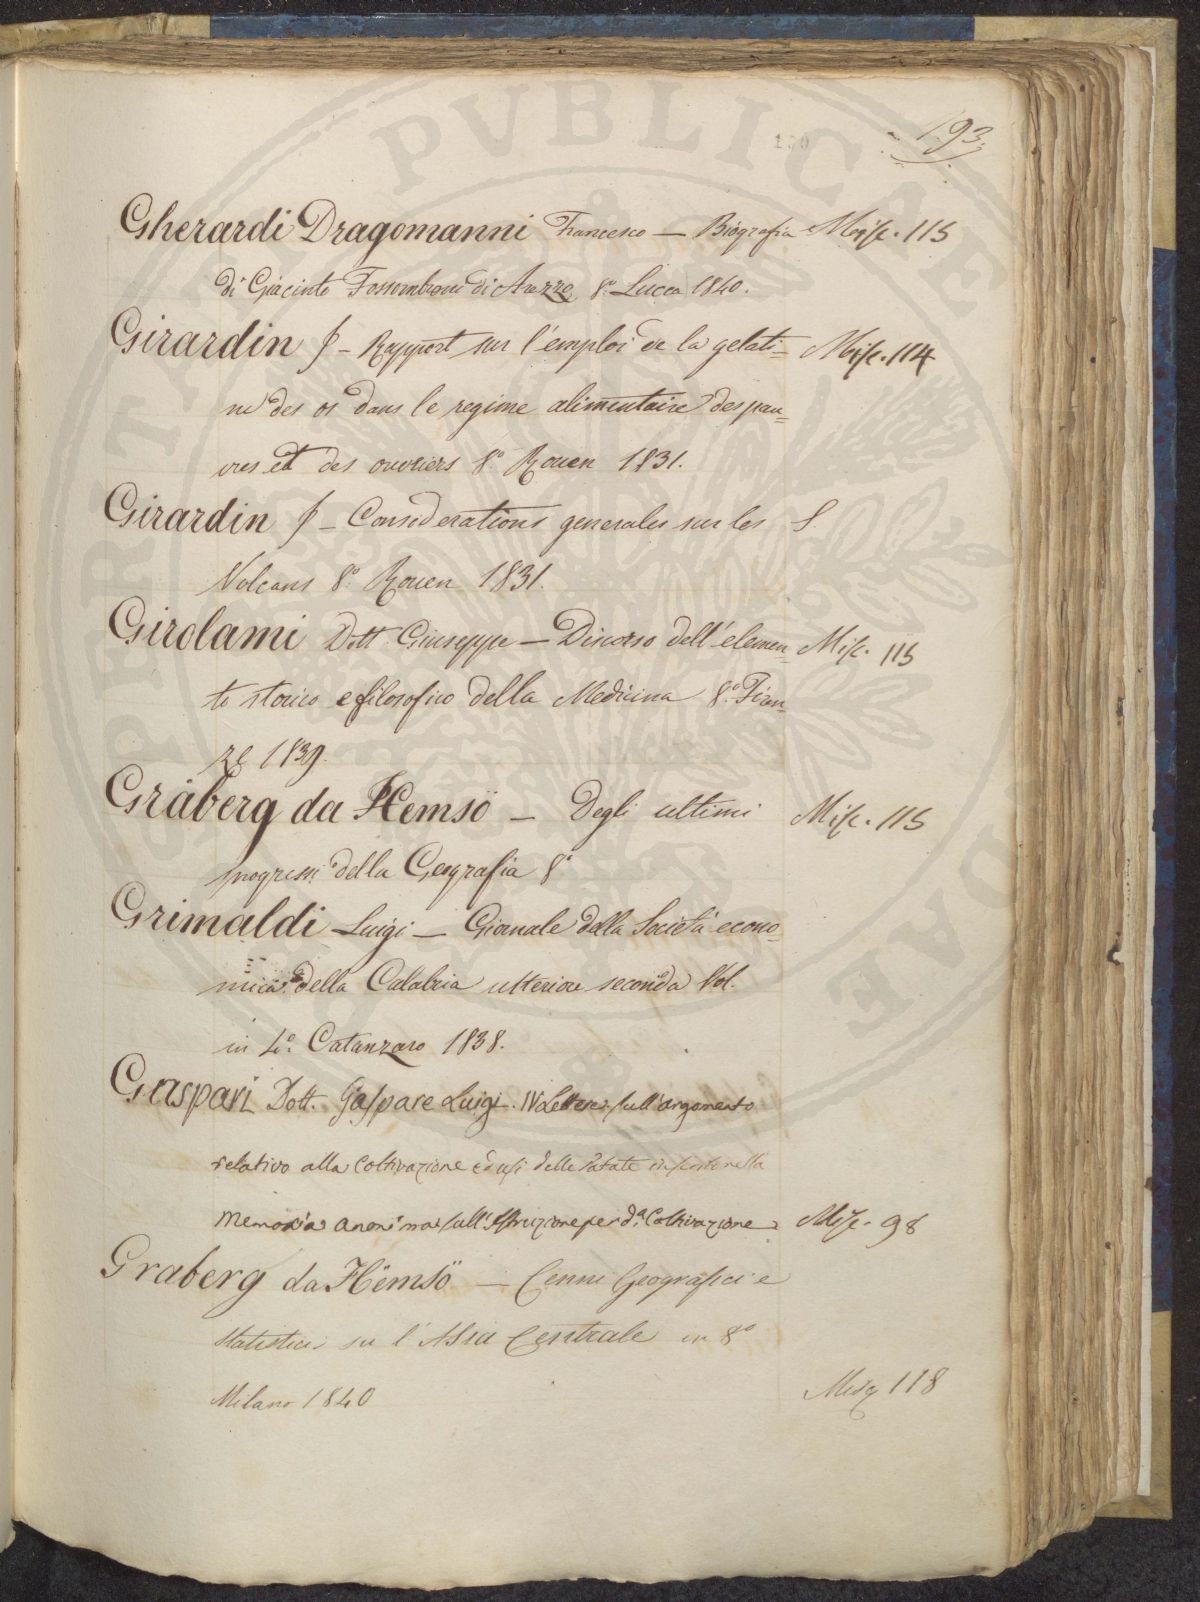 193.
130
Gherardi Dragomanni Francesco — Biografia Misc. 115
di Giacinto Fossombroni di Arezzo 8.° Lucca 1840.
Girardin J – Rapport sur l'emploi de la gelati= Misc. 114
ne des os dans le regime alimentaire des pau=
vres et des ouvriers 8.° Rouen 1831.
Girardin J – Considerations generales sur les S.
Volcans 8.° Rouen 1831.
Girolami Dott Giuseppe — Discorso dell'elemen= Misc. 115
to storico e filosofico della Medicina 8.° Firen=
ze 1839.
Gräberg da Hemsö — Degli ultimi Misc. 115
progressi della Geografia 8.°
Grimaldi Luigi — Giornale della Società econo=
mica della Calabria ulteriore seconda Vol.
in 4.° Catanzaro 1838.
Gaspari Dott. Gaspare Luigi. IV Lettere sull'argomento
relativo alla coltivazione ed usi delle Patate
Memoria anonima sull'Istruzione per d.ª Coltivazione Misc. 98
Graberg da Hëmsö — Cenni Geografici e
Statistici su l'Asia Centrale in 8°
Milano 1840 Misc 118
PUBLICAE